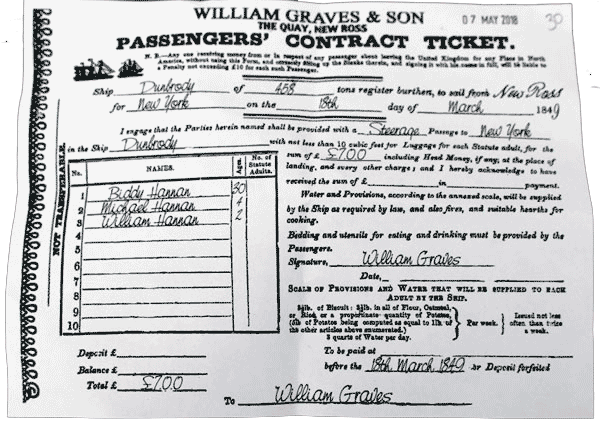 WILLIAM GRAVES & SON
THE QUAY, NEW ROSS
07 MAY 2018
30
PASSENGERS' CONTRACT TICKET.
N. B.—Any one receiving money from or in respect of any passenger about leaving the United Kingdom for any Place in North
America, without using this Form, and correctly filling up the Blanks therein, and signing it with his name in full, will be liable to
a Penalty not exceeding £10 for each such Passenger.
Ship Dunbrody of 458 tons register burthen, to sail from New Ross
for New York on the 18th day of March 1849
I engage that the Parties herein named shall be provided with a Steerage Passage to New York
in the Ship Dunbrody with not less than 10 cubic feet for Luggage for each Statute adult, for the
sum of £ £7.00 including Head Money, if any, at the place of
landing, and every other charge; and I hereby acknowledge to have
received the sum of £ in payment.
Water and Provisions, according to the annexed scale, will be supplied
by the Ship as required by law, and also fires, and suitable hearths for
cooking.
Bidding and utensils for eating and drinking must be provided by the
Passengers.
Signature, William Graves
Date,
NOT TRANSFERABLE.
No. NAMES. Age. No. of Statute Adults.
1 Biddy Hannan 30
2 Michael Hannan 4
3 William Hannan 2
4
5
6
7
8
9
10
SCALE OF PROVISIONS AND WATER THAT WILL BE SUPPLIED TO EACH
ADULT BY THE SHIP.
lb. of Biscuit: lb. in all of Flour, Oatmeal,
or Rice, or a proportionate quantity of Potatoes,
(5lb of Potatoes being computed as equal to 1lb. of
the other articles above enumerated.)
3 quarts of Water per day.
Per week.
Issued not less
often than twice
a week.
Deposit £
Balance £
Total £ £7.00
To be paid at
before the 18th March 1849 or Deposit forfeited
To William Graves